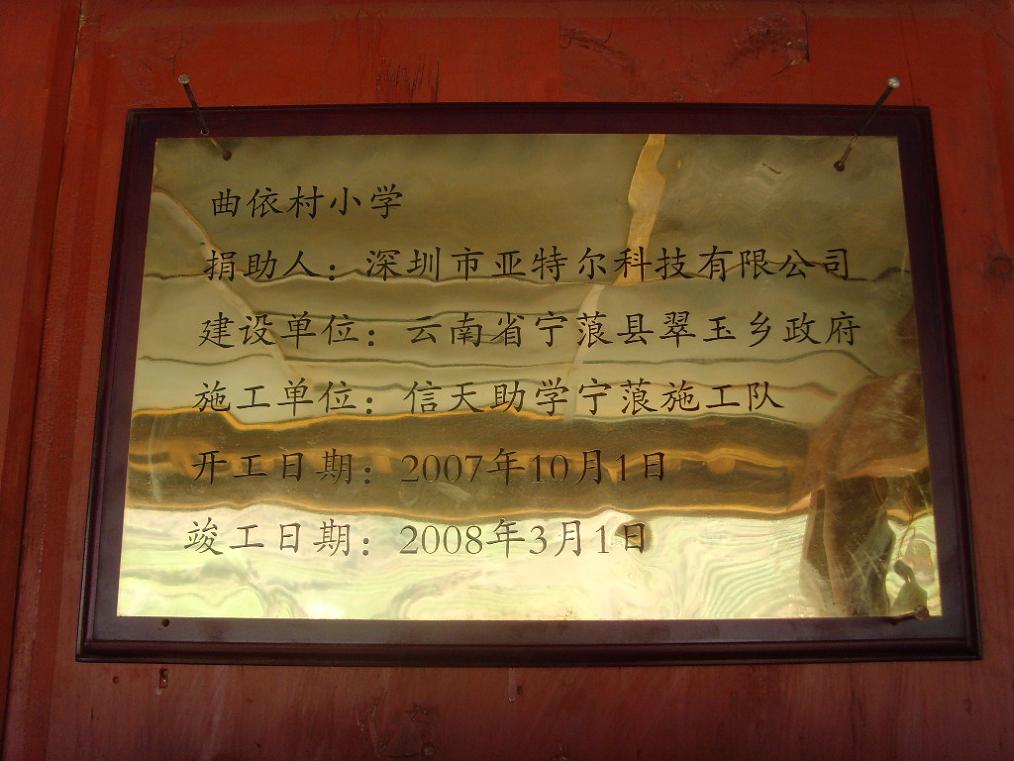 曲依村小学
捐助人：深圳市亚特尔科技有限公司
建设单位：云南省宁蒗县翠玉乡政府
施工单位：信天助学宁蒗施工队
开工日期：2007年10月1日
竣工日期：2008年3月1日